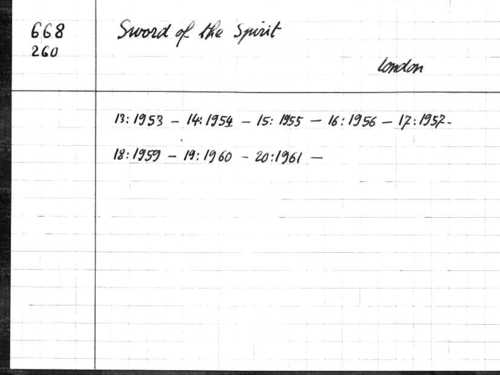 668
260
Sword of the Spirit
London
13:1953 - 14:1954 - 15:1955 - 16:1956 - 17:1957-
18:1959 - 19:1960 - 20:1961 -